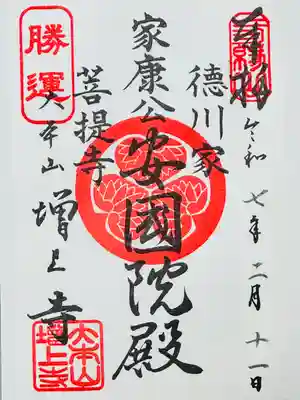 奉拝
令和七年二月十一日
德川家
家康公安國院殿
菩提寺
勝運
大本山増上寺
大本山
増上寺